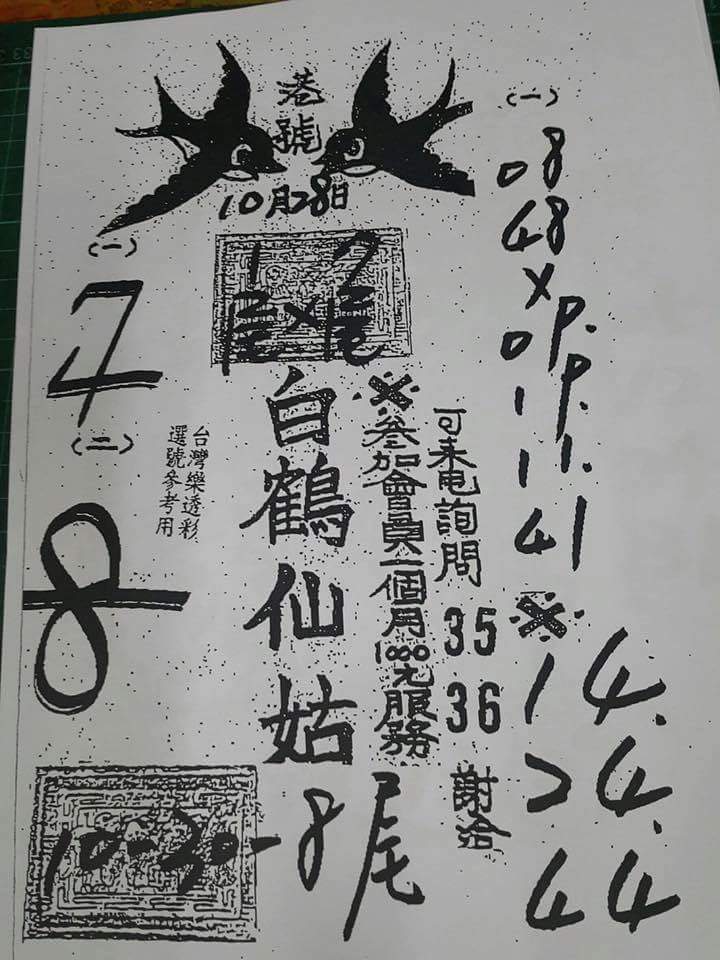 港號
10月28日
(一)
7
4
(二)
8
1尾×7尾
白鶴仙姑
台灣樂透彩
選號參考用
※參加會員一個月1000元服務
可來电詢問
35
36
謝洽
(一)
08
48
×
09.
19.
11.
41
※
14.
24.
44
10-30-8尾